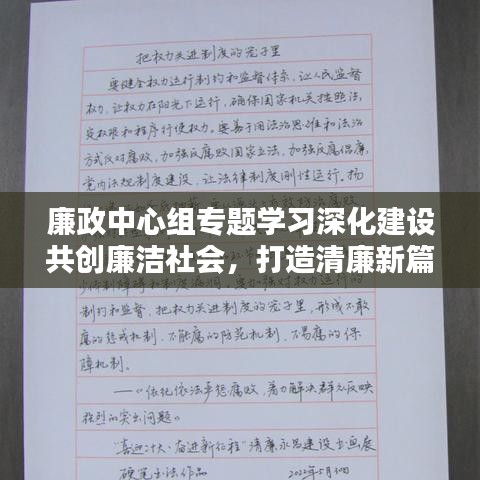 把权力关进制度的笼子里
要健全权力运行制约和监督体系，让人民监督
权力，让权力在阳光下运行，确保国家机关按照法
定权限和程序行使权力。要善于用法治思维和法治
方式反对腐败，加强反腐败国家立法，加强反腐倡廉
党内法规制度建设，让法律制度刚性运行。扬
廉政中心组专题学习深化建设
共创廉洁社会，打造清廉新篇
的制约和监督，把权力关进制度的笼子里，形成不敢
腐的惩戒机制、不能腐的防范机制、不易腐的保
障机制。
——《依纪依法严惩腐败，着力解决群众反映
强烈的突出问题》
“喜迎二十大·奋进新征程”清廉永思建设书画展
硬笔书法作品
2022年5月30日